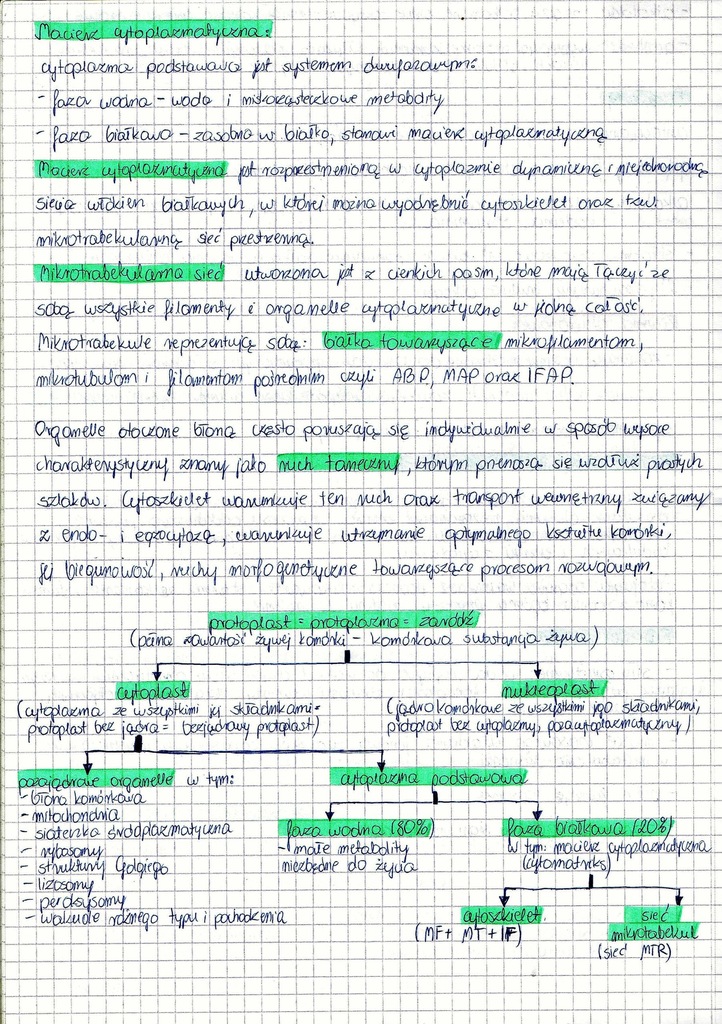 Macierz cytoplazmatyczna:
cytoplazma podstawowa jest systemem dwufazowym:
- faza wodna - woda i mikrocząsteczkowe metabolity
- faza białkowa - zasobna w białko, stanowi macierz cytoplazmatyczną
Macierz cytoplazmatyczna jest rozprzestrzenioną w cytoplazmie dynamiczną i niejednorodną
siecią włókien białkowych, w której można wyodrębnić cytoszkielet oraz tzw.
mikrotrabekularną sieć przestrzenną.
Mikrotrabekularna sieć utworzona jest z cienkich pasm, które mają łączyć ze
sobą wszystkie filamenty i organelle cytoplazmatyczne w jedną całość.
Mikrotrabekule reprezentują sobą: białka towarzyszące mikrofilamentom,
mikrotubulom i filamentom pośrednim czyli ABP, MAP oraz IFAP.
Organelle otoczone błoną często poruszają się indywidualnie w sposób wysoce
charakterystyczny znany jako ruch taneczny, którym przenoszą się wzdłuż prostych
szlaków. Cytoszkielet warunkuje ten ruch oraz transport wewnętrzny związany
z endo- i egzocytozą, warunkuje utrzymanie optymalnego kształtu komórki,
jej biegunowość, ruchy morfogenetyczne towarzyszące procesom rozwojowym.
protoplast = protoplazma = zaródź
(pełna zawartość żywej komórki - komórkowa substancja żywa)
cytoplast
(cytoplazma ze wszystkimi jej składnikami =
protoplast bez jądra = bezjądrowy protoplast)
nukleoplast
(jądro komórkowe ze wszystkimi jego składnikami,
protoplast bez cytoplazmy, pozacytoplazmatyczny)
pozajądrowe organelle w tym:
- błona komórkowa
- mitochondria
- siateczka śródplazmatyczna
- rybosomy
- struktury Golgiego
- lizosomy
- peroksysomy
- wakuole różnego typu i pochodzenia
cytoplazma podstawowa
faza wodna (80%)
- małe metabolity
niezbędne do życia
faza białkowa (20%)
w tym: macierz cytoplazmatyczna
(cytomatriks)
cytoszkielet
(MF + MT + IF)
sieć
mikrotrabekul
(sieć MTR)